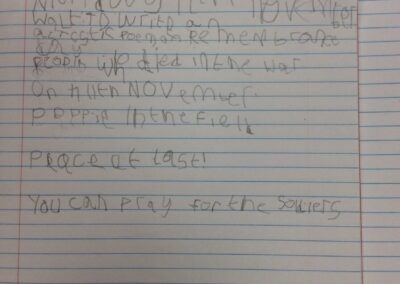 NOVEMber
Wait to write an
acrostic poem on Remembrance
Day
people who died in the war
On 11th NOVember.
poppie in the field
Peace at last!
You can pray for the solders